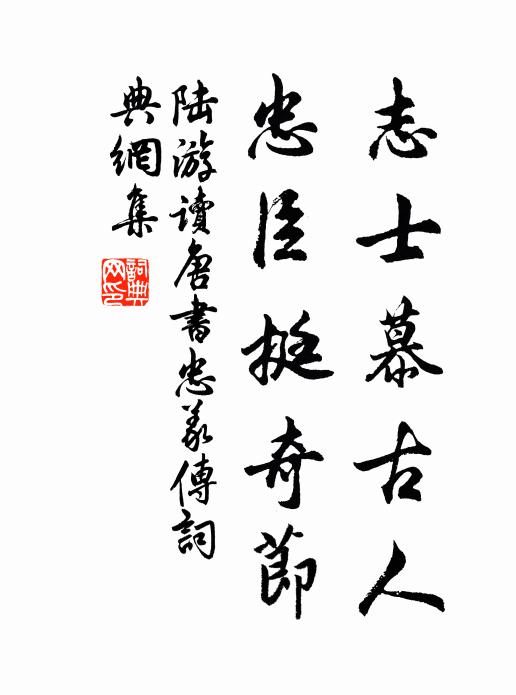 志士慕古人
忠臣挺奇節
陆游讀唐書忠義傳詞
典網集
詞典
网印